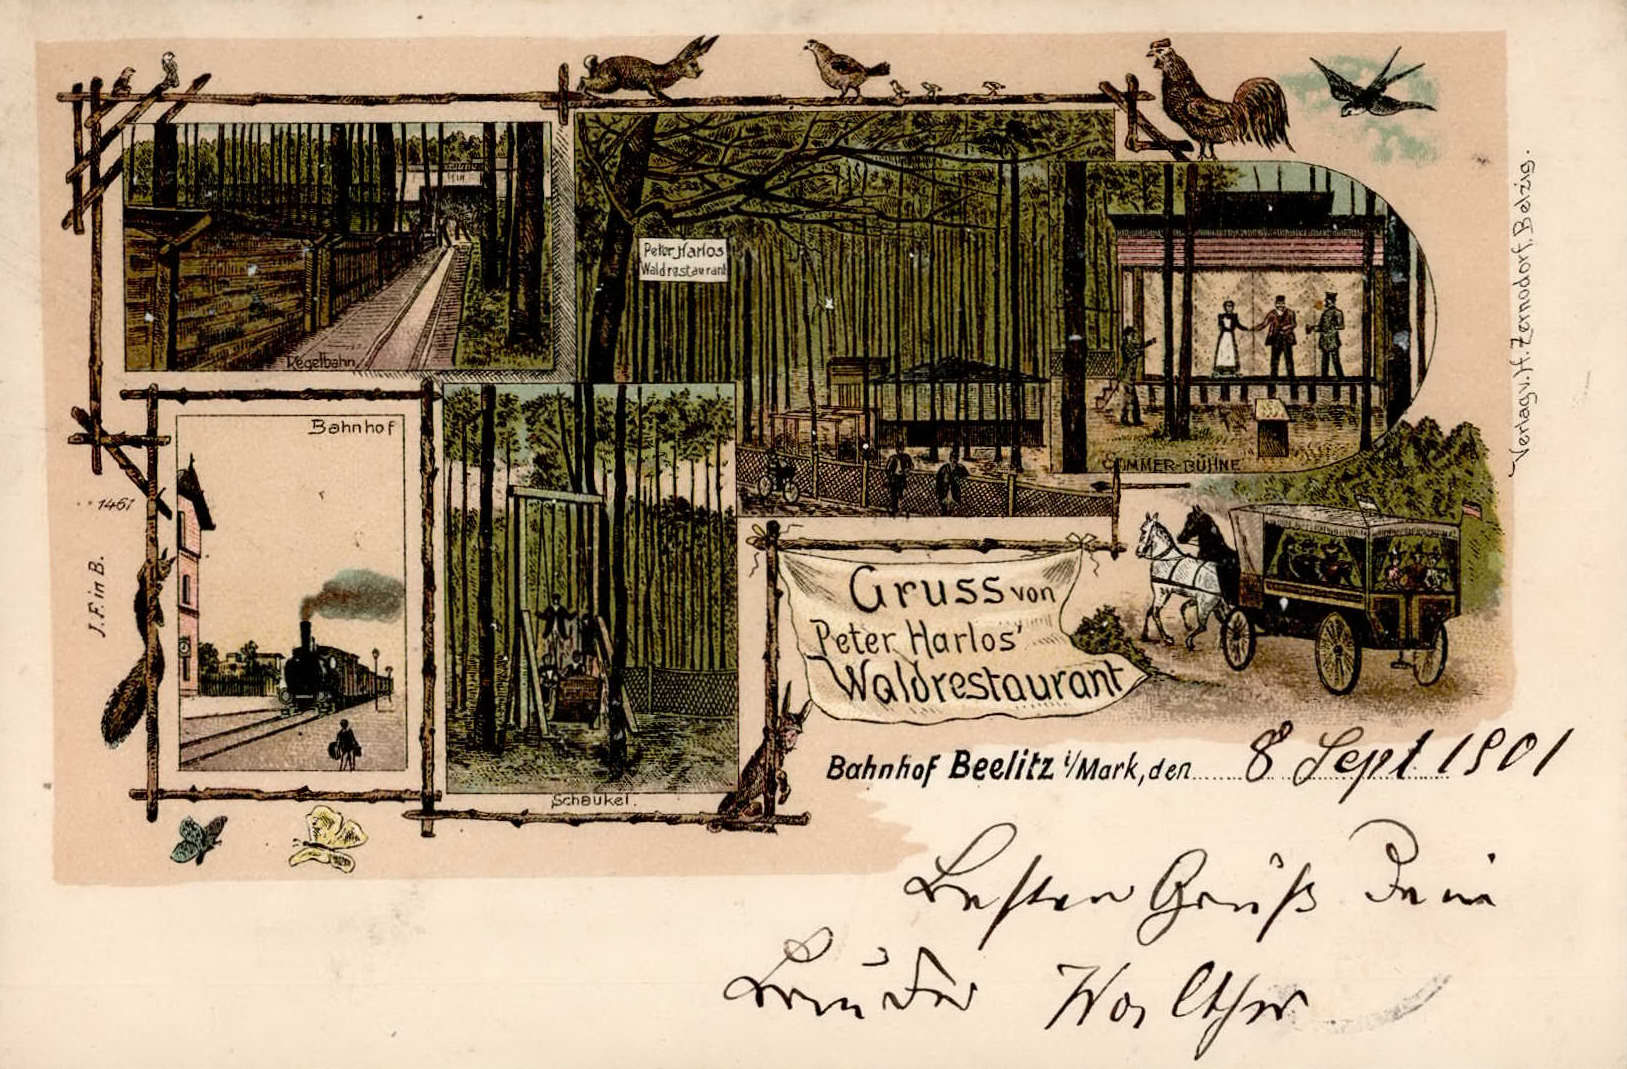 Kegelbahn
Peter Harlos
Waldrestaurant
SOMMER-BÜHNE
Bahnhof
Schaukel.
Gruss von
Peter Harlos'
Waldrestaurant
Bahnhof Beelitz i/Mark, den 8 Sept 1901
Besten Gruß Dein
Bruder Walther
Verlag v. H. Zernodorf, Belzig.
1461
J. F. in B.